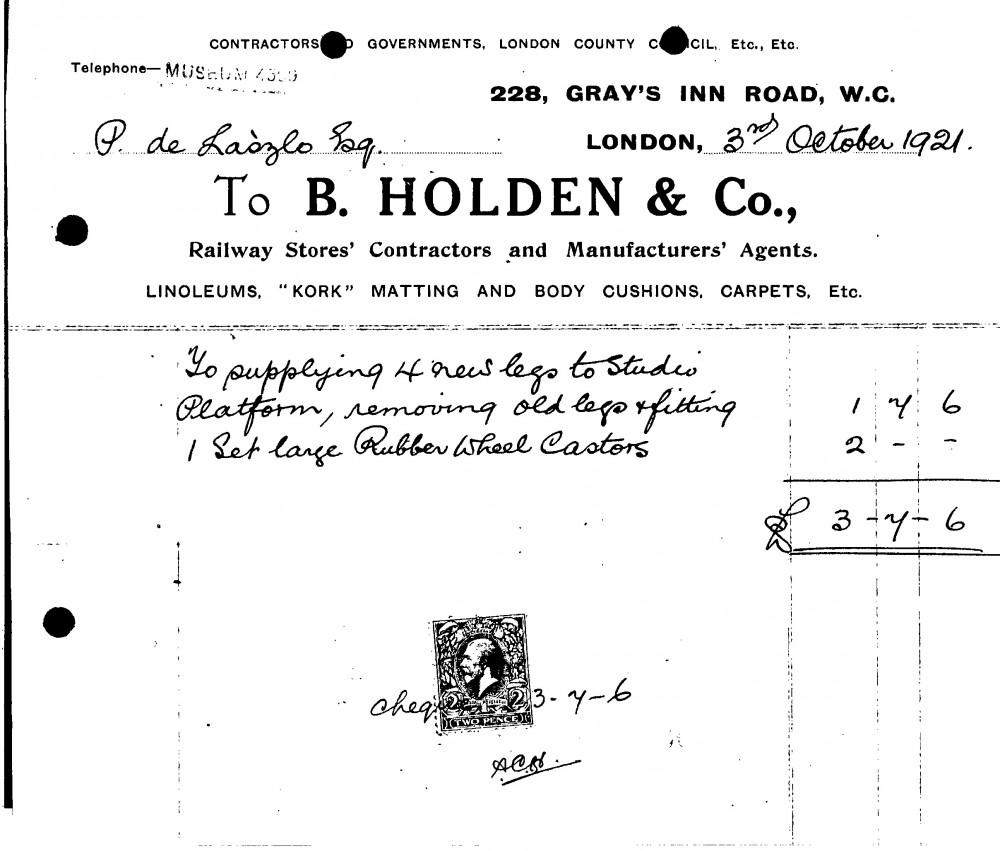 CONTRACTORS GOVERNMENTS, LONDON COUNTY COUNCIL, Etc., Etc.
Telephone— MUSEUM
228, GRAY'S INN ROAD, W.C.
P. de László Esq. LONDON, 3rd October 1921.
To B. HOLDEN & Co.,
Railway Stores' Contractors and Manufacturers' Agents.
LINOLEUMS, "KORK" MATTING AND BODY CUSHIONS, CARPETS, Etc.
To supplying 4 new legs to Studio
Platform, removing old legs & fitting 1 7 6
1 Set large Rubber Wheel Castors 2 - -
£ 3 - 7 - 6
2 2
TWO PENCE
3 - 7 - 6